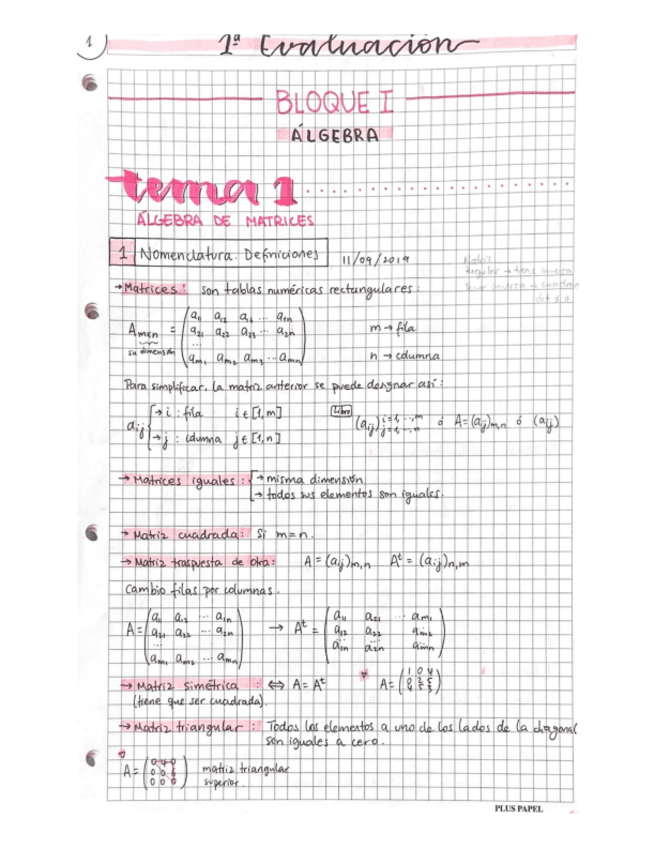 1
1ª Evaluación
BLOQUE I
ÁLGEBRA
tema 1
ÁLGEBRA DE MATRICES
1 Nomenclatura. Definiciones 11/09/2019
Matriz
Regular → tiene inversa
Tener inversa →
→ Matrices: son tablas numéricas rectangulares:
Amxn = ( a11 a12 a13 ... a1n
a21 a22 a23 ... a2n
...
am1 am2 am3 ... amn )
su dimensión
m → fila
n → columna
Para simplificar, la matriz anterior se puede designar así:
aij → i : fila i ∈ [1,m]
→ j : columna j ∈ [1,n]
Libro (aij) i=1,...,m j=1,...,n ó A=(aij)m,n ó (aij)
→ Matrices iguales: → misma dimensión
→ todos sus elementos son iguales.
→ Matriz cuadrada: Si m=n.
→ Matriz traspuesta de otra: A = (aij)m,n At = (aij)n,m
Cambio filas por columnas.
A = ( a11 a12 ... a1n
a21 a22 ... a2n
...
am1 am2 ... amn )
→ At = ( a11 a21 ... am1
a12 a22 am2
a1n a2n amn )
→ Matriz simétrica : ⇔ A = At
(tiene que ser cuadrada).
A = (
→ Matriz triangular : Todos los elementos a uno de los lados de la diagonal
son iguales a cero.
A = (
0 0
0 0 0 )
matriz triangular
superior.
PLUS PAPEL